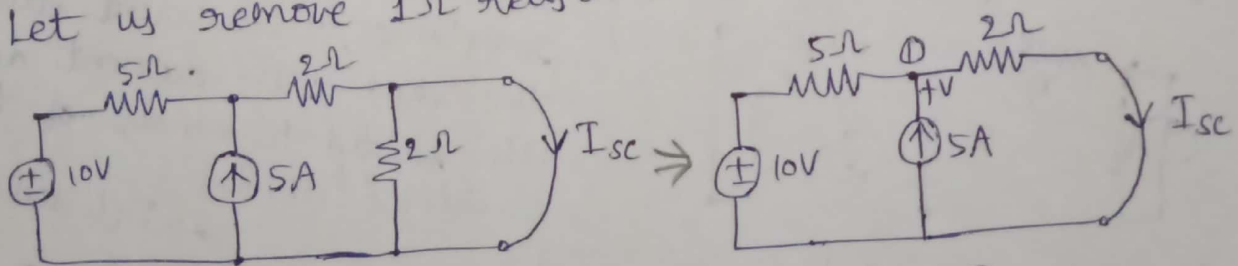 Let us remove 1Ω
5Ω. 2Ω
10V 5A 2Ω Isc
5Ω ① 2Ω
+V
10V 5A Isc